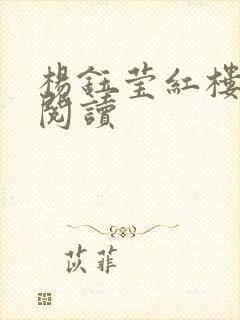 楊鈺瑩紅樓
閱讀
苡菲